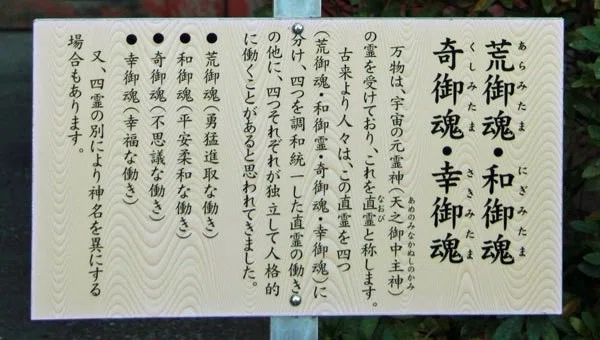 荒御魂・和御魂
あらみたま にぎみたま
奇御魂・幸御魂
くしみたま さきみたま
万物は、宇宙の元霊神（天之御中主神）
あめのみなかぬしのかみ
の霊を受けており、これを直霊と称します。
なおひ
古来より人々は、この直霊を四つ
（荒御魂・和御霊・奇御魂・幸御魂）に
分け、四つを調和統一した直霊の働き
の他に、四つそれぞれが独立して人格的
に働くことがあると思われてきました。
●荒御魂（勇猛進取な働き）
●和御魂（平安柔和な働き）
●奇御魂（不思議な働き）
●幸御魂（幸福な働き）
又、四霊の別により神名を異にする
場合もあります。